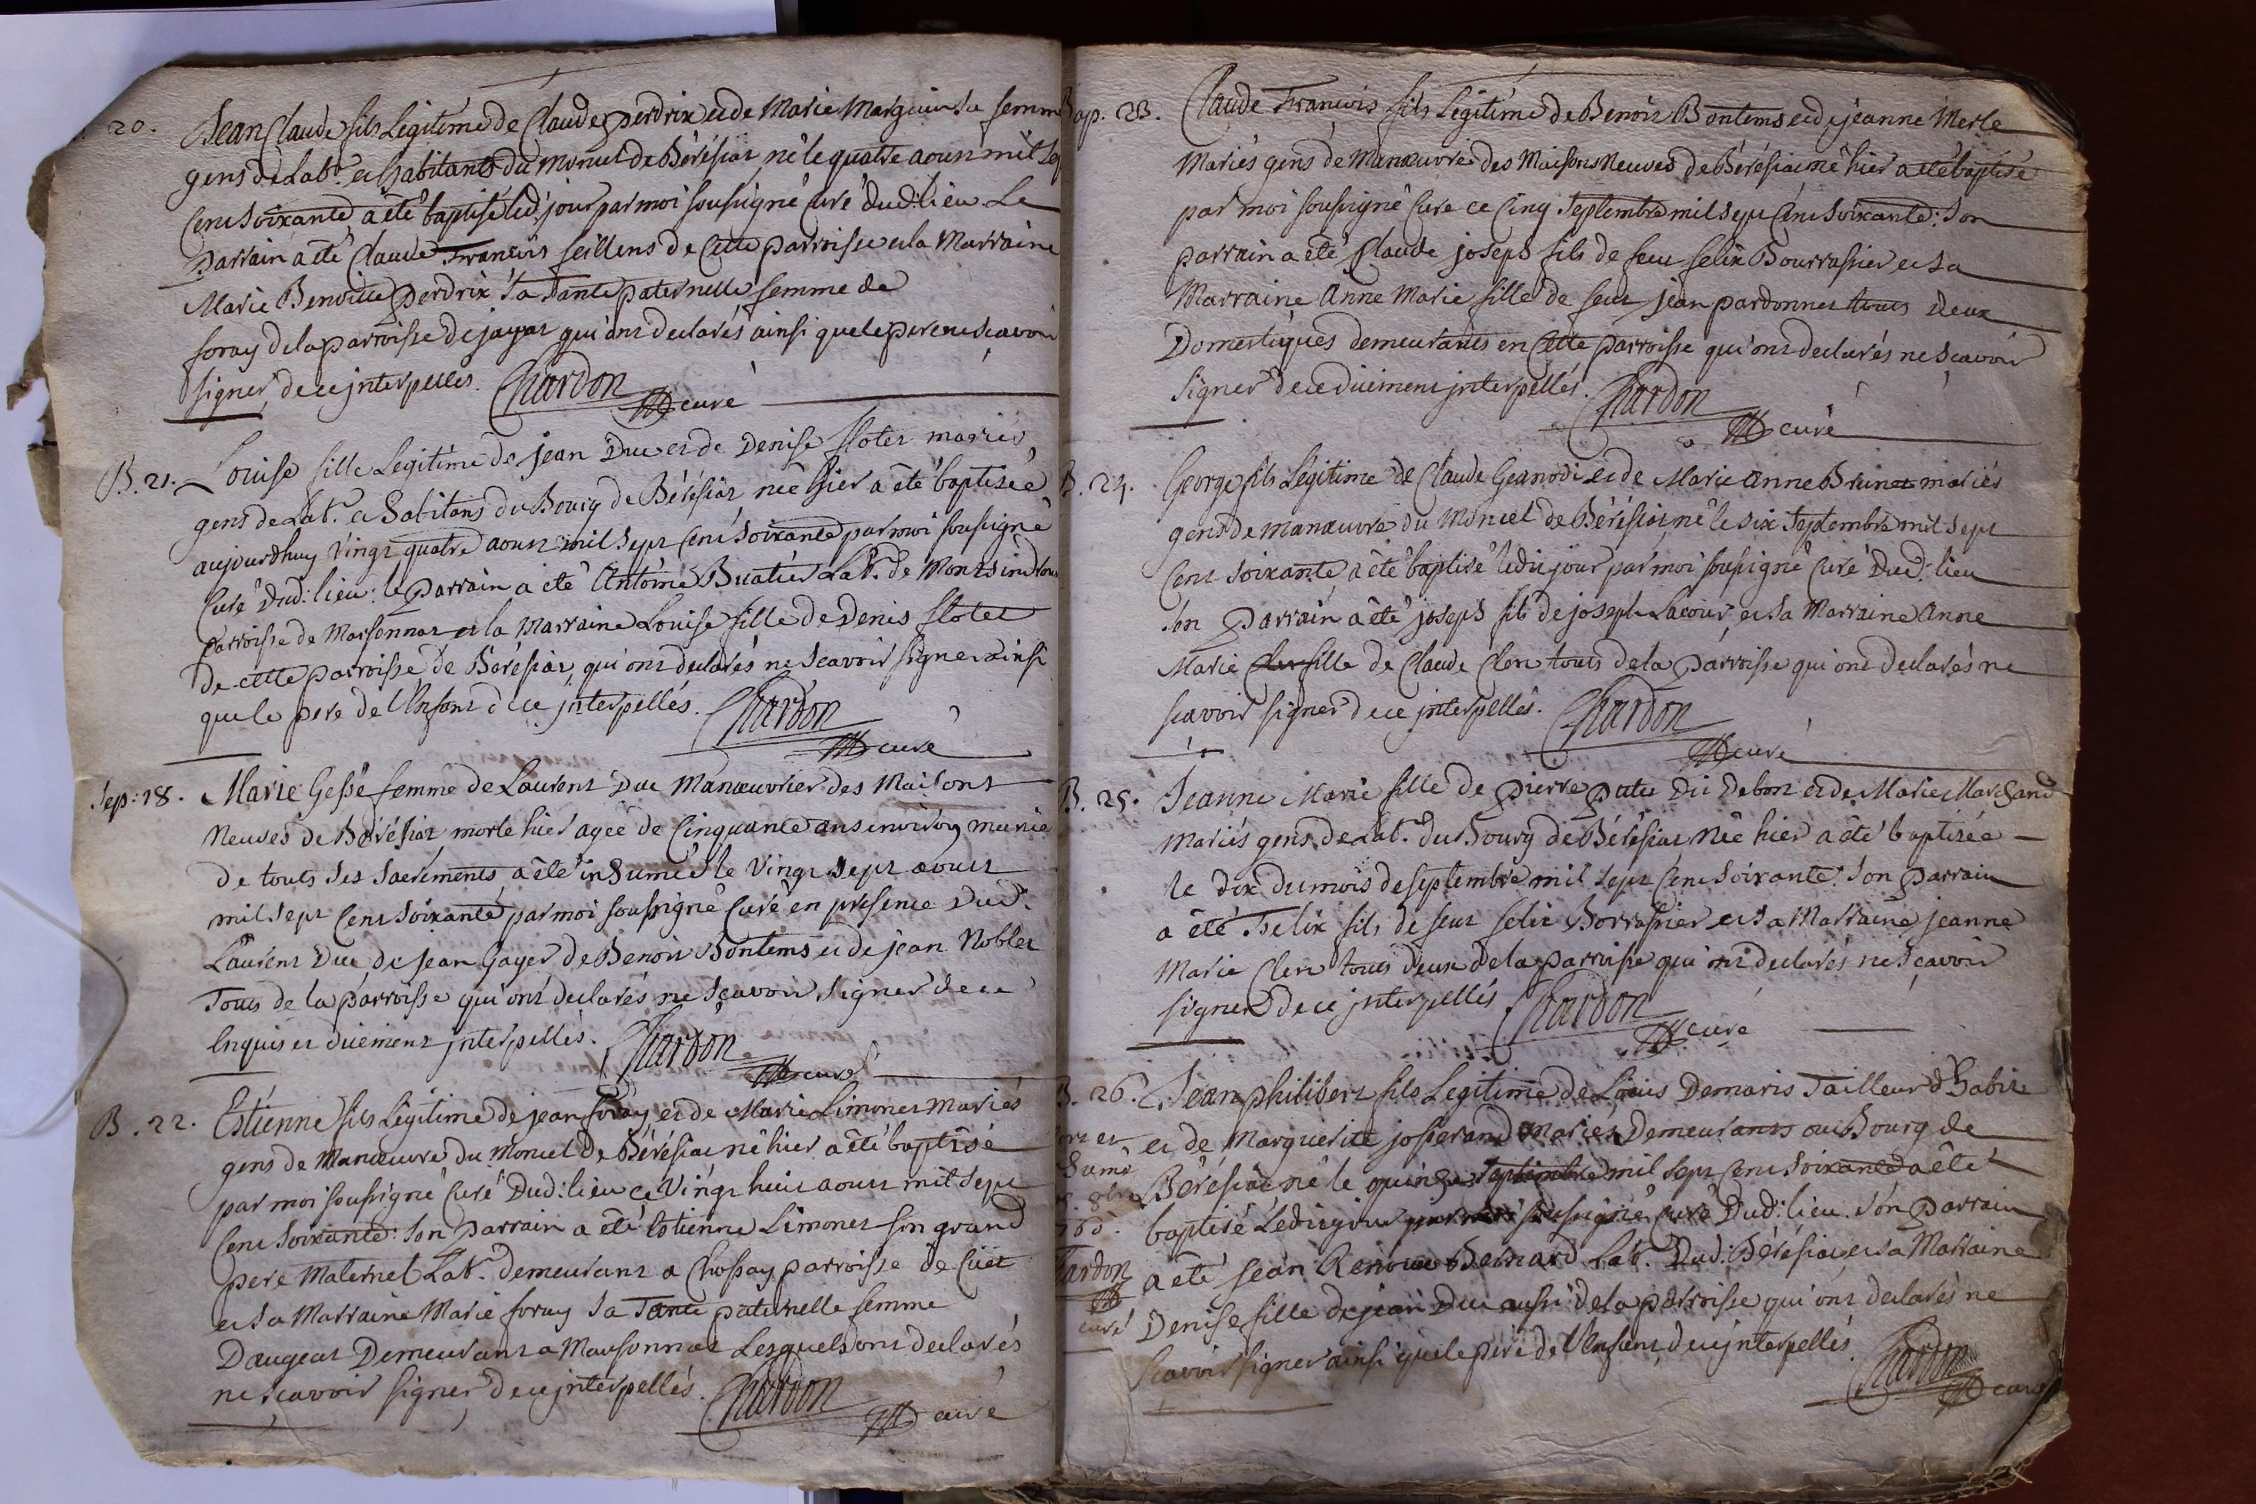 20. Jean Claude fils Legitime de Claude perdrix et de Marie Marguin sa femme
gens de Lab.r et habitants du Moncel de Béréziat, né le quatre aoust mil sep
Cent Soixante a été baptisé led. jour par moi soussigné Curé dud: lieu Le
parrain a été Claude François seillens de Cette parroisse et la Marraine
Marie Benoitte perdrix sa Tante paternelle femme de
foray de la parroisse de jayat qui ont declarés ainsi que le pere ne scavoir
signer de ce jnterpellés. Chardon
curé
B. 21. Louise fille Legitime de jean Duc et de Denise flotet mariés
gens de Lab.r et habitans du Bourg de Béréziat née hier a été baptisée
aujourdhuy Vingt quatre aoust mil sept Cent Soixante par moi soussigné
Curé Dud: lieu: le parrain a été Antoine Buatier Lab.r de Montsindroux
parroisse de Marsonnas et la Marraine Louise fille de Denis flotet
de cette parroisse de Béréziat, qui ont declarés ne Scavoir signer ainsi
que le pere de l'Enfant de ce jnterpellés. Chardon
curé
Sep: 18. Marie Gessé femme de Laurent Duc Manœuvrier des Maisons
Neuves de Béréziat morte hier agée de Cinquante ans environ munie
de touts ses sacréments a été inhumée le Vingt sept aoust
mil sept Cent Soixante par moi soussigné Curé en presence Dud.
Laurent Duc de jean Gayer de Benoit Bontems et de jean Noblet
Tous de la parroisse qui ont declarés ne Scavoir signer de ce
Enquis et düement jnterpellés. Chardon
curé
B. 22. Estienne fils Légitime de jean foray et de Marie Limonet Mariés
gens de Manœuvre du Moncel de Béréziat né hier a été baptisé
par moi soussigné Curé Dud: lieu ce Vingt huit aoust mil sept
Cent Soixante: Son parrain a été Estienne Limonet son grand
pere Maternel Lab.r demeurant a Chossay parroisse de Cuet
et sa Marraine Marie foray sa Tante paternelle femme
Daugeat Demeurant a Marsonnas Lesquels ont declarés
ne scavoir signer de ce jnterpellés. Chardon
curé
Bap: 23. Claude François fils Légitime de Benoit Bontems et de jeanne Merle
Mariés gens de Manœuvre des Maisons Neuves de Béréziat né hier a été baptisé
par moi soussigné Curé ce Cinq Septembre mil sept Cent Soixante: Son
parrain a été Claude joseph fils de feu felix Bourrassier et sa
Marraine Anne Marie fille de feu jean pardonnet touts deux
Domestiques demeurants en Cette parroisse qui ont declarés ne scavoir
signer de ce düement jnterpellés. Chardon
curé
B. 24. George fils Légitime de Claude Geanodi et de Marie Anne Brunet mariés
gens de manœuvre du Moncel de Béréziat né le six Septembre mil sept
Cent Soixante a été baptisé ledit jour par moi soussigné Curé Dud: lieu
Son parrain a été joseph fils de joseph Lacour, et sa Marraine Anne
Marie fille de Claude Clerc touts de la parroisse qui ont declarés ne
scavoir signer de ce jnterpellés. Chardon
curé
B. 25. Jeanne Marie fille de pierre Dit Debost et de Marie Marchand
Mariés gens de Lab.r du Bourg de Béréziat Née hier a été baptisée
le dix du mois de septembre mil sept Cent Soixante: Son parrain
a été felix fils de feu felix Borrassier et sa Marraine jeanne
Marie Clerc touts deux de la parroisse qui ont declarés ne scavoir
signer de ce jnterpellés Chardon
curé
B. 26. Jean philibert fils Legitime de Louis Demaris Tailleur d'habits
et de Marguerite josserand Mariés Demeurants au Bourg de
Béréziat né le quinze Septembre mil sept Cent Soixante a été
baptisé Ledit jour par moi soussigné Curé Dud: lieu. Son parrain
a été jean Bernard Lab.r Dud: Béréziat et sa Marraine
Denise fille de jean Duc aussi de la parroisse qui ont declarés ne
scavoir signer ainsi que le pere de l'Enfant de ce jnterpellés. Chardon
curé
mort et
humé
Chardon
curé